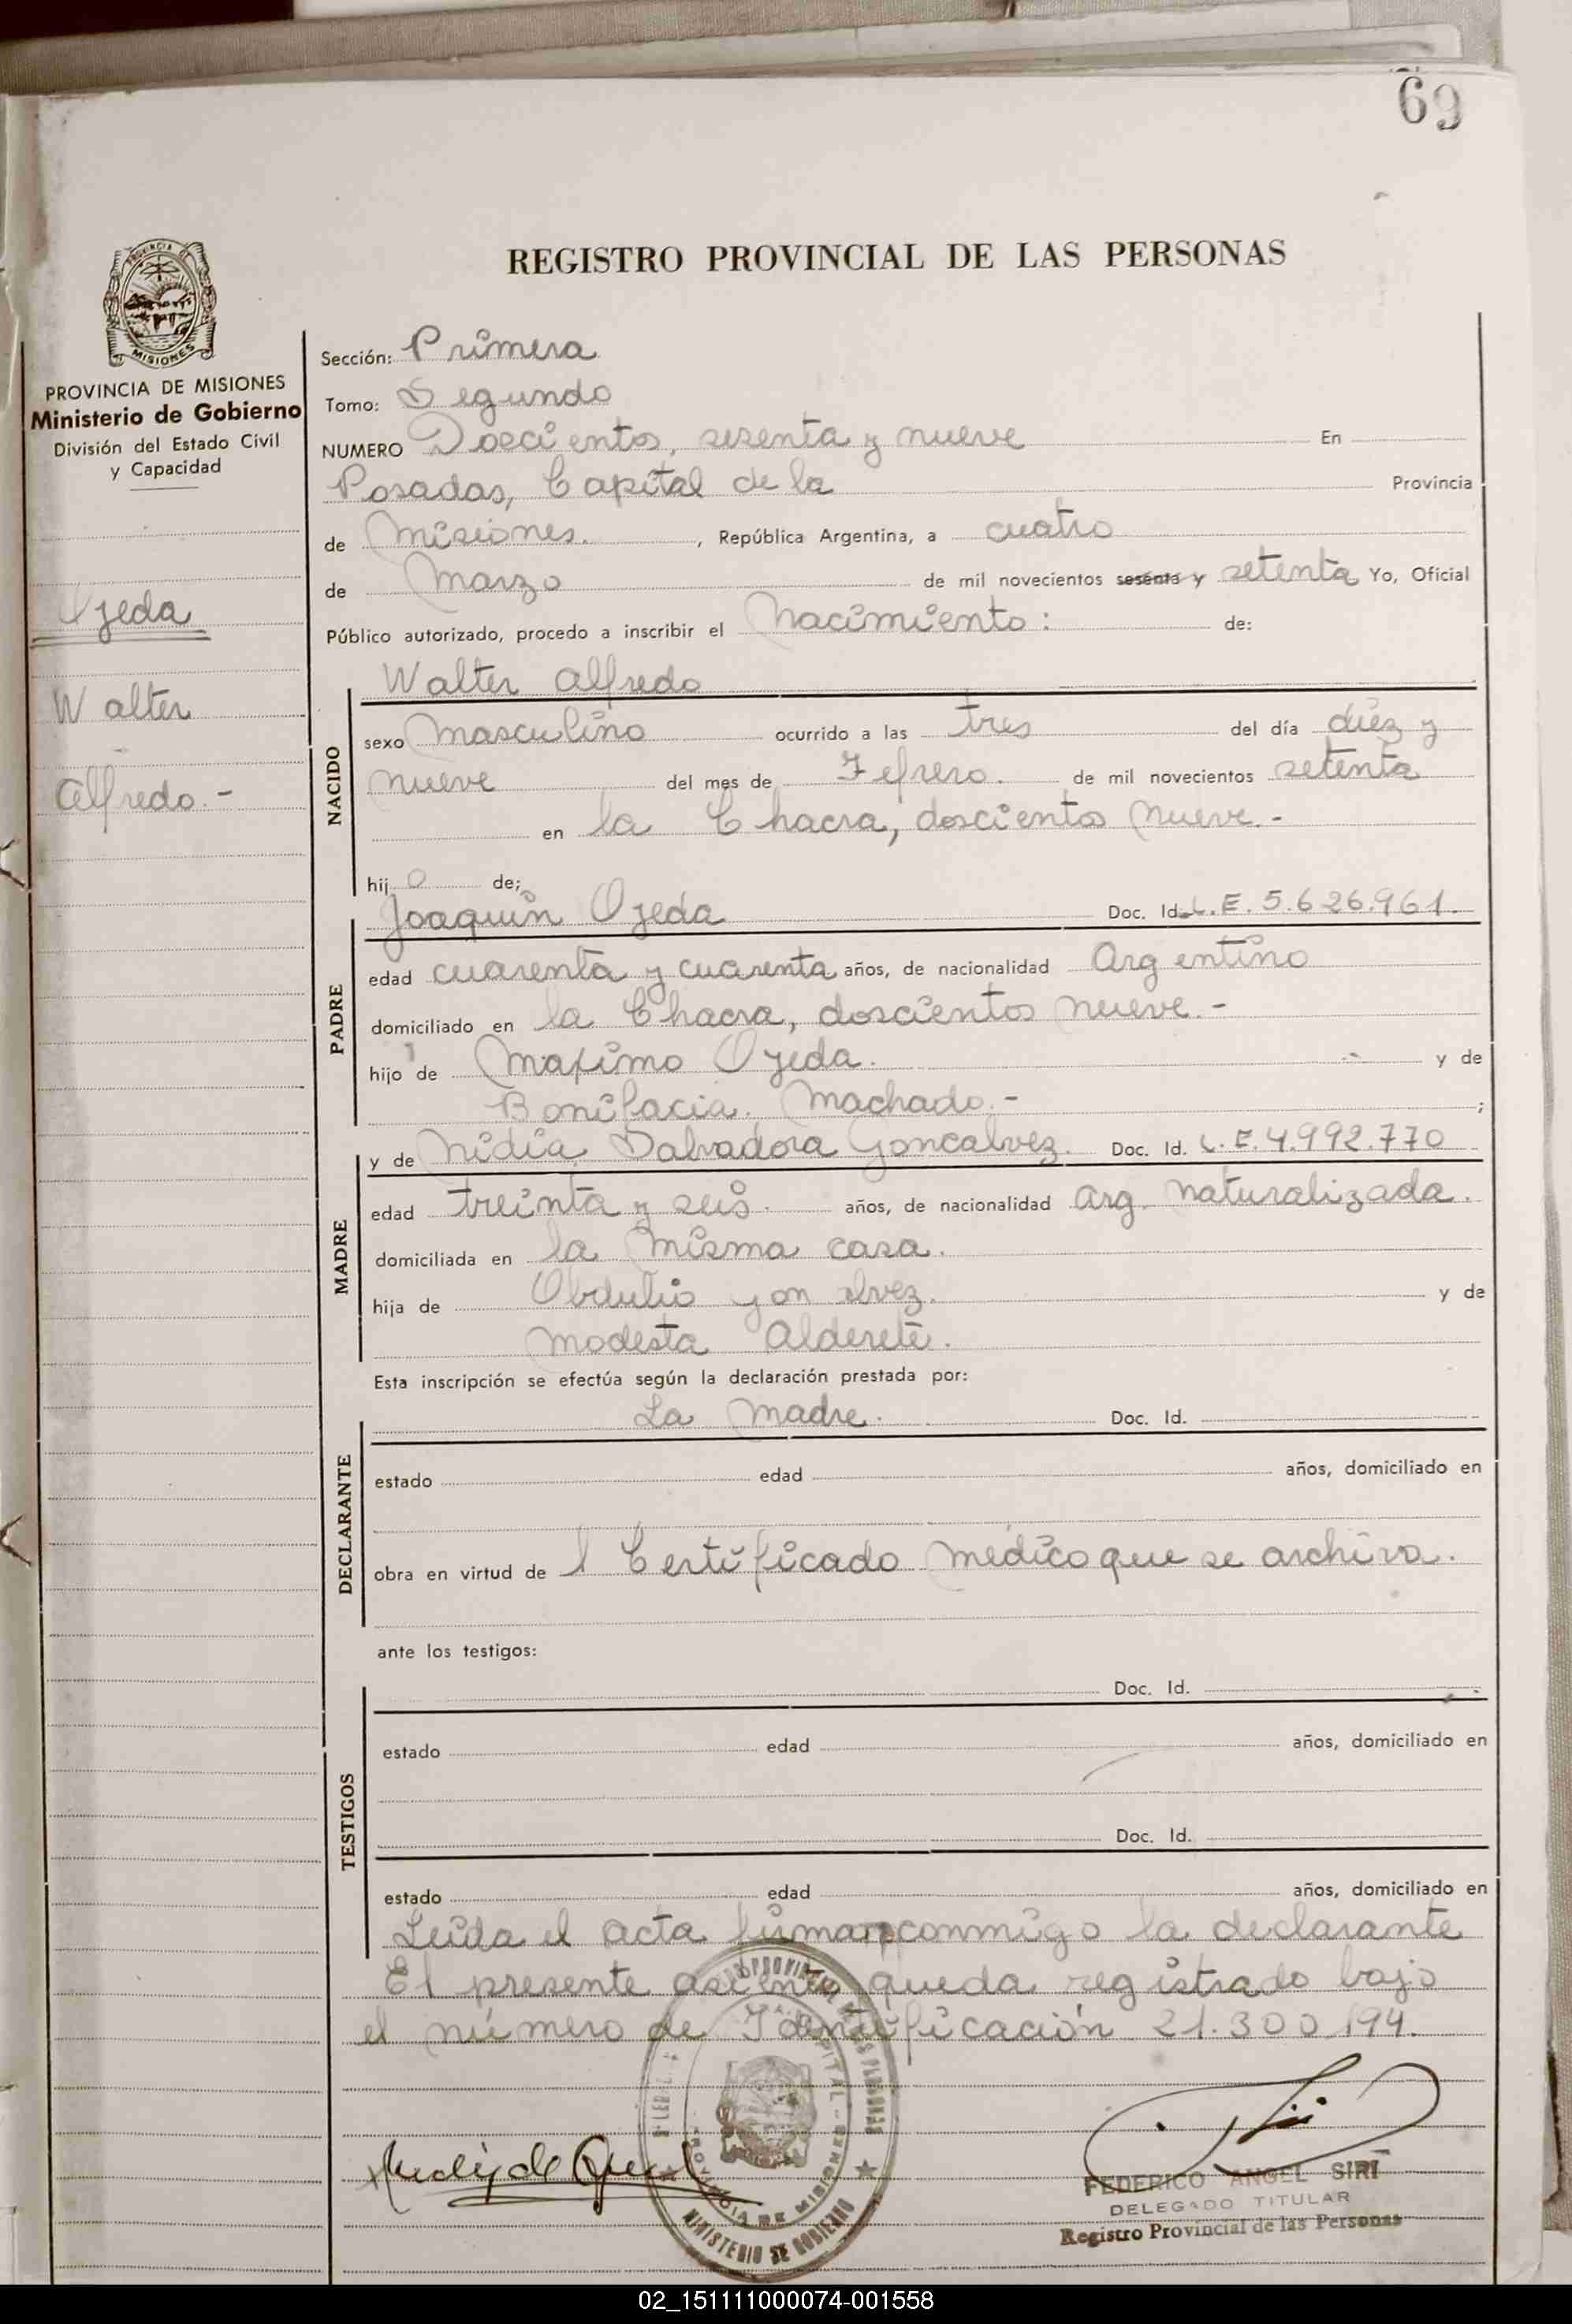 69
REGISTRO PROVINCIAL DE LAS PERSONAS
PROVINCIA
MISIONES
PROVINCIA DE MISIONES
Ministerio de Gobierno
División del Estado Civil
y Capacidad
Ojeda
Walter
Alfredo.-
Sección: Primera
Tomo: Segundo
NUMERO Doscientos, sesenta y nueve En
Posadas, Capital de la Provincia
de Misiones. , República Argentina, a cuatro
de Marzo de mil novecientos sesenta y setenta Yo, Oficial
Público autorizado, procedo a inscribir el Nacimiento: de:
Walter Alfredo
NACIDO
sexo Masculino ocurrido a las tres del día diez y
nueve del mes de Febrero. de mil novecientos setenta
en la Chacra, doscientos nueve.-
hijo de;
Joaquin Ojeda Doc. Id. L.E. 5.626.961.
PADRE
edad cuarenta y cuarenta años, de nacionalidad Argentino
domiciliado en la Chacra, doscientos nueve.-
hijo de Maximo Ojeda. y de
Bonifacia. Machado.- ;
y de Nidia Salvadora Goncalvez. Doc. Id. L.E. 4.992.770
MADRE
edad treinta y seis. años, de nacionalidad Arg. naturalizada.
domiciliada en la misma casa.
hija de Obdulio Gon alvez. y de
Modesta Alderete.
Esta inscripción se efectúa según la declaración prestada por:
La Madre. Doc. Id.
DECLARANTE
estado edad años, domiciliado en
obra en virtud de l Certificado Médico que se archiva.
ante los testigos:
Doc. Id.
TESTIGOS
estado edad años, domiciliado en
Doc. Id.
estado edad años, domiciliado en
Leida el acta firman conmigo la declarante
El presente asiento queda registrado bajo
el número de Identificación 21.300.194.
PROVINCIA DE MISIONES
MINISTERIO DE GOBIERNO
FEDERICO ANGEL SIRI
DELEGADO TITULAR
Registro Provincial de las Personas
02_151111000074-001558